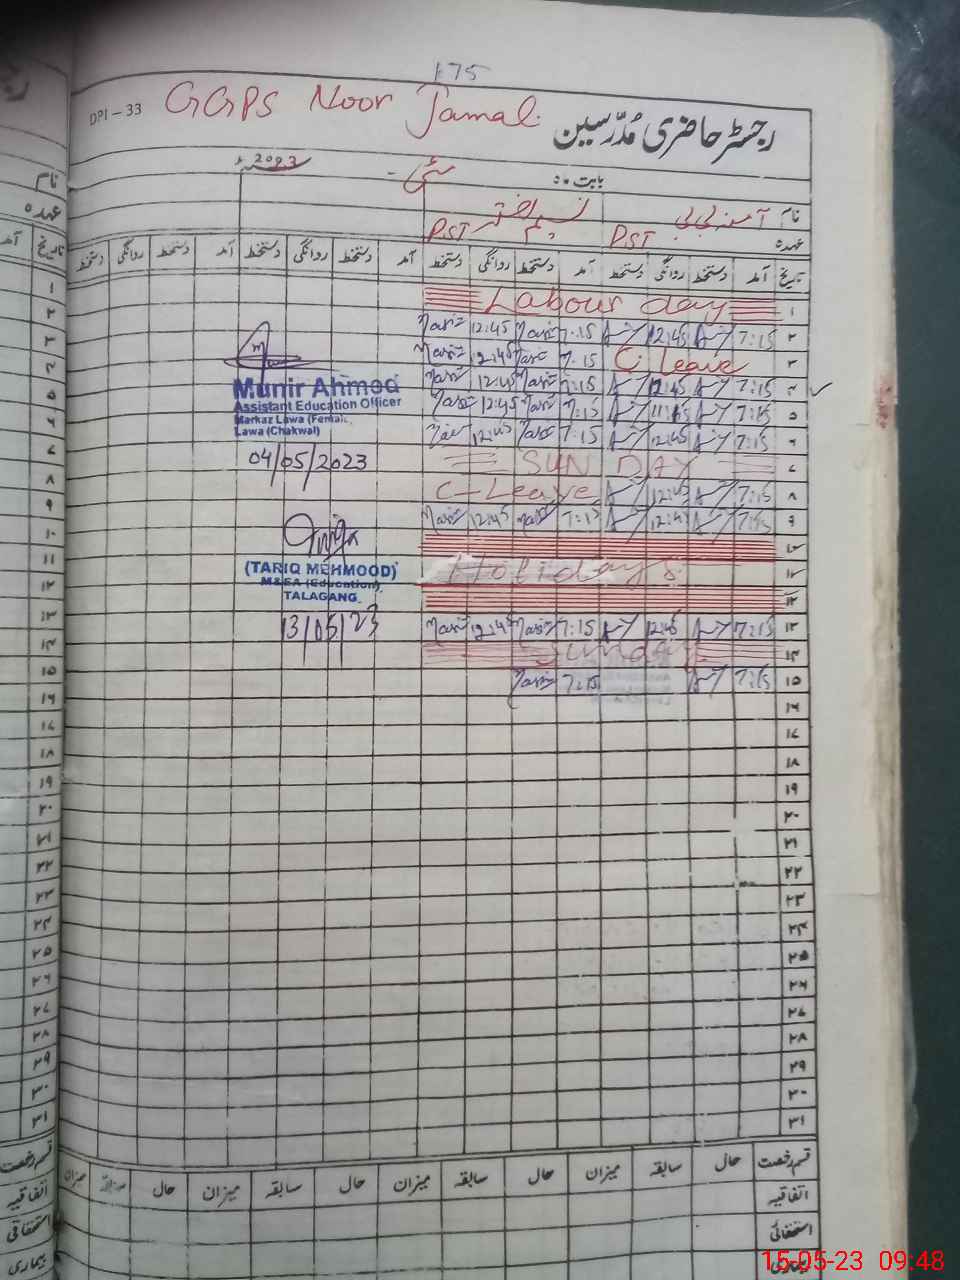 175
DPI - 33 GGPS Noor Jamal رجسٹر حاضری مُدرّسین
بابت ماہ مئی 2023ء
نام آمنہ بی بی نسیم اختر
عہدہ PST PST
تاریخ آمد دستخط روانگی دستخط آمد دستخط روانگی دستخط آمد دستخط روانگی دستخط آمد دستخط روانگی دستخط
۱ Labour day
۲ 7:15 12:45 7:15 12:45
۳ C Leave 7:15 12:45
۴ 7:15 12:45 7:15 12:45
۵ 7:15 11:45 7:15 12:45
۶ 7:15 12:45 7:15 12:45
۷ SUN DAY
۸ 7:15 12:45 C-Leave
۹ 7:15 12:45 7:15 12:45
۱۰
۱۱ Holidays
۱۲
۱۳ 7:15 12:45 7:15 12:45
۱۴ Sunday
۱۵ 7:15 7:15
۱۶
۱۷
۱۸
۱۹
۲۰
۲۱
۲۲
۲۳
۲۴
۲۵
۲۶
۲۷
۲۸
۲۹
۳۰
۳۱
Munir Ahmed
Assistant Education Officer
Markaz Lawa (Female)
Lawa (Chakwal)
04/05/2023
(TARIQ MEHMOOD)
M&EA (Education)
TALAGANG
13/05/23
قسم رخصت حال سابقہ میزان حال سابقہ میزان حال سابقہ میزان حال سابقہ میزان
اتفاقیہ
استحقاقی
بیماری
نام
عہدہ
تاریخ آمد
۱
۲
۳
۴
۵
۶
۷
۸
۹
۱۰
۱۱
۱۲
۱۳
۱۴
۱۵
۱۶
۱۷
۱۸
۱۹
۲۰
۲۱
۲۲
۲۳
۲۴
۲۵
۲۶
۲۷
۲۸
۲۹
۳۰
۳۱
قسم رخصت
اتفاقیہ
استحقاقی
بیماری
15-05-23 09:48